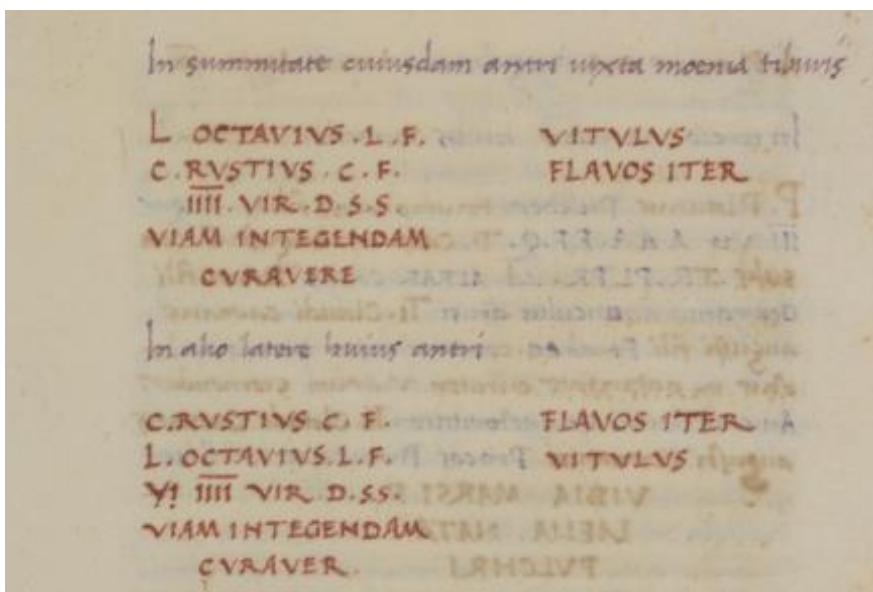 In summitate cuiusdam antri iuxta moenia tiburis
L OCTAVIVS . L . F. VITVLVS
C . RVSTIVS . C . F. FLAVOS ITER
IIII . VIR . D . S . S
VIAM INTEGENDAM
CVRAVERE
In alio latere huius antri
C. RVSTIVS C F. FLAVOS ITER
L. OCTAVIVS. L. F. VITVLVS
IIII VIR D. SS.
VIAM INTEGENDAM
CVRAVER.